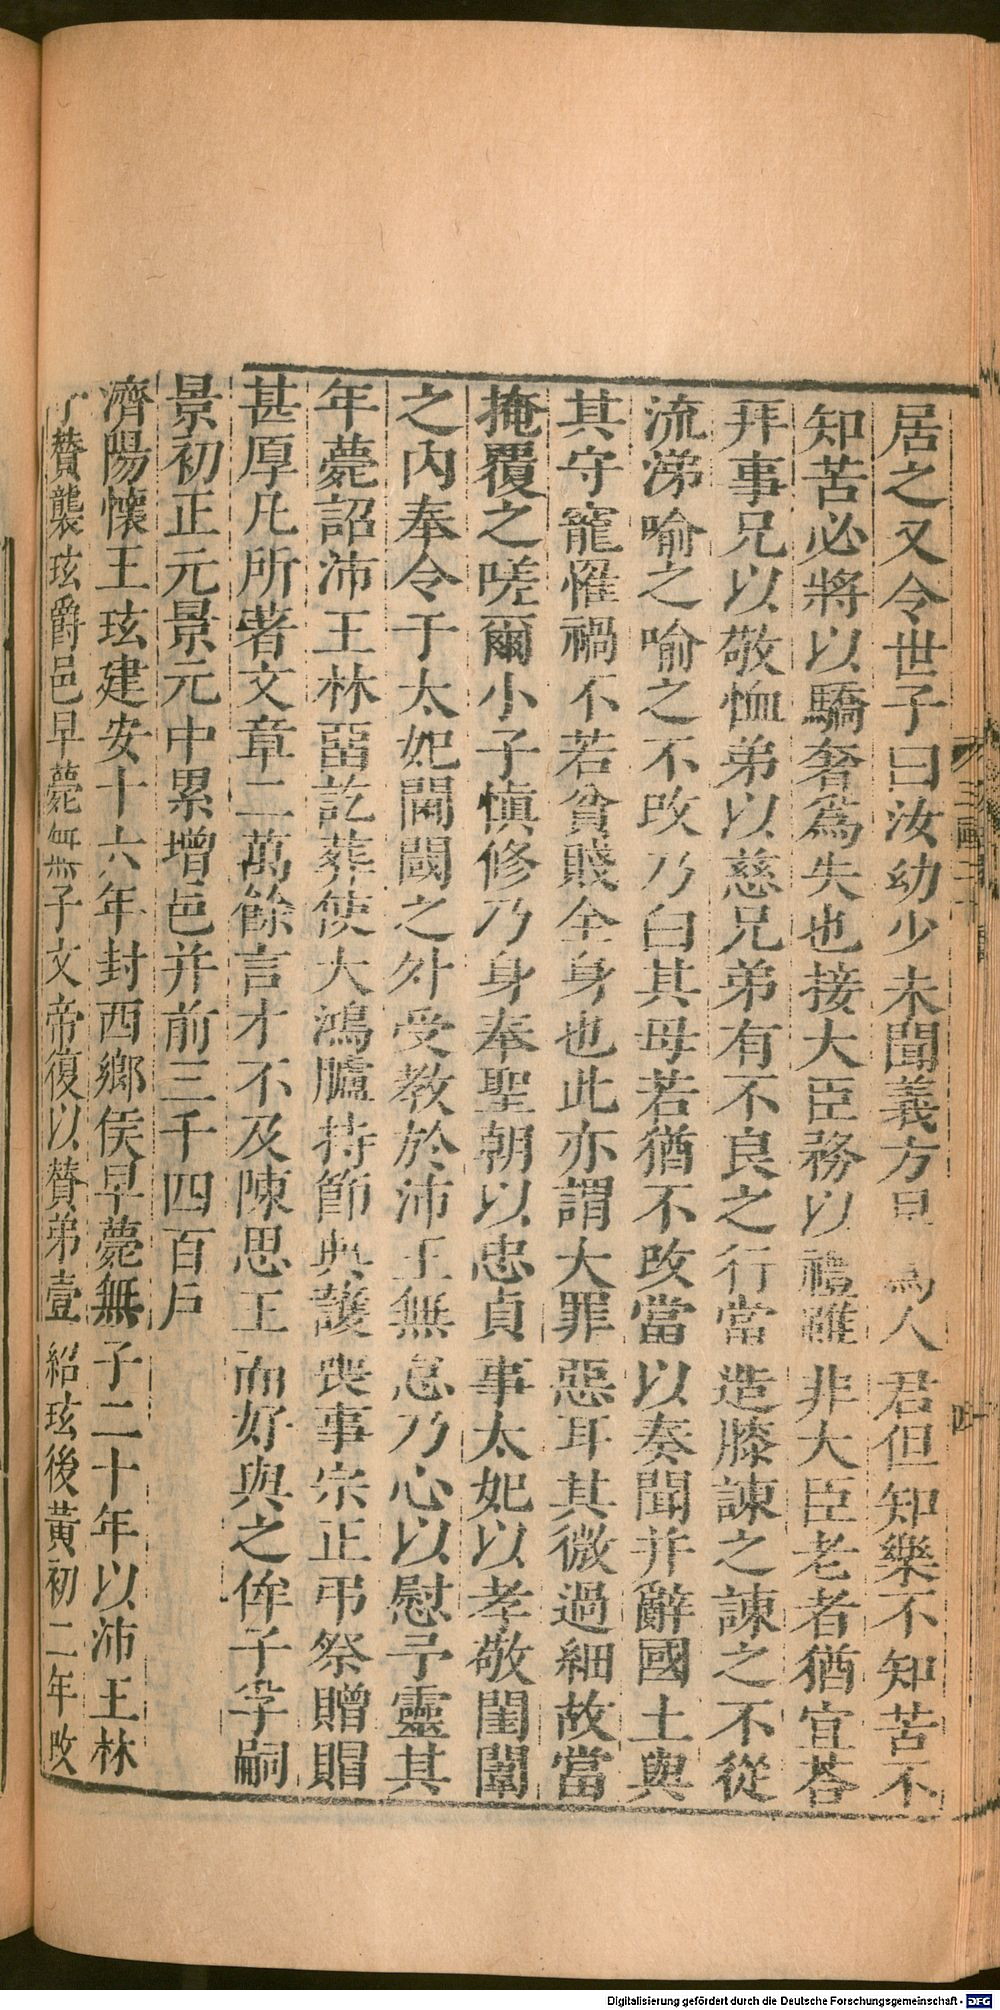 居之又令世子曰汝幼少未聞義方早爲人君但知樂不知苦不
知苦必將以驕奢爲失也接大臣務以禮雖非大臣老者猶宜荅
拜事兄以敬恤弟以慈兄弟有不良之行當造膝諫之諫之不從
流涕喻之喻之不改乃白其母若猶不改當以奏聞并辭國土與
其守寵罹禍不若貧賤全身也此亦謂大罪惡耳其微過細故當
掩覆之嗟爾小子愼修乃身奉聖朝以忠貞事太妃以孝敬閨闈
之内奉令于太妃閫閾之外受教於沛王無怠乃心以慰予靈其
年薨詔沛王林留訖葬使大鴻臚持節典護喪事宗正弔祭贈賵
甚厚凡所著文章二萬餘言才不及陳思王而好與之侔子孚嗣
景初正元景元中累增邑并前三千四百戶
濟陽懷王玹建安十六年封西鄉侯早薨無子二十年以沛王林
子贊襲玹爵邑早薨無子文帝復以贊弟壹紹玹後黃初二年改
三国
Digitalisierung gefördert durch die Deutsche Forschungsgemeinschaft - DFG